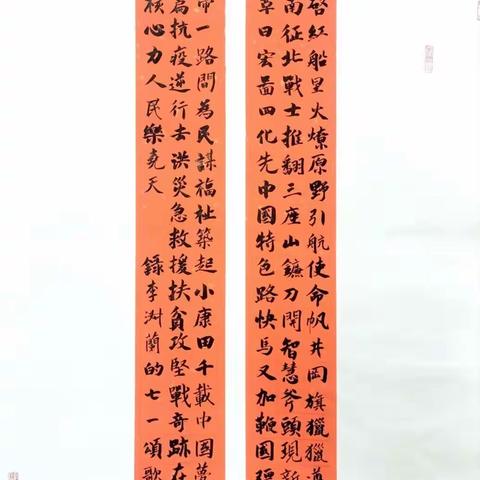 啓紅船星火燎原野引航使命帆井岡旗獵獵
南征北戰士推翻三座山鐮刀開智慧斧頭現新
日宏圖四化先中國特色路快馬又加鞭國
一路間為民謀福祉築起小康田千載中國夢
抗疫逆行去洪災急救援扶貧攻堅戰奇跡在
核心力人民樂堯天 錄李淑蘭的七一頌歌